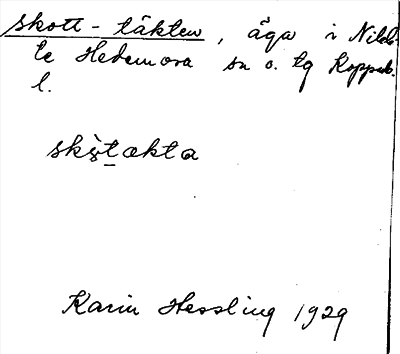 skott-täkten, äga i Nibb-
le Hedemora sn o. tg Kopparb.
l.
skòtækta
Karin Hessling 1929